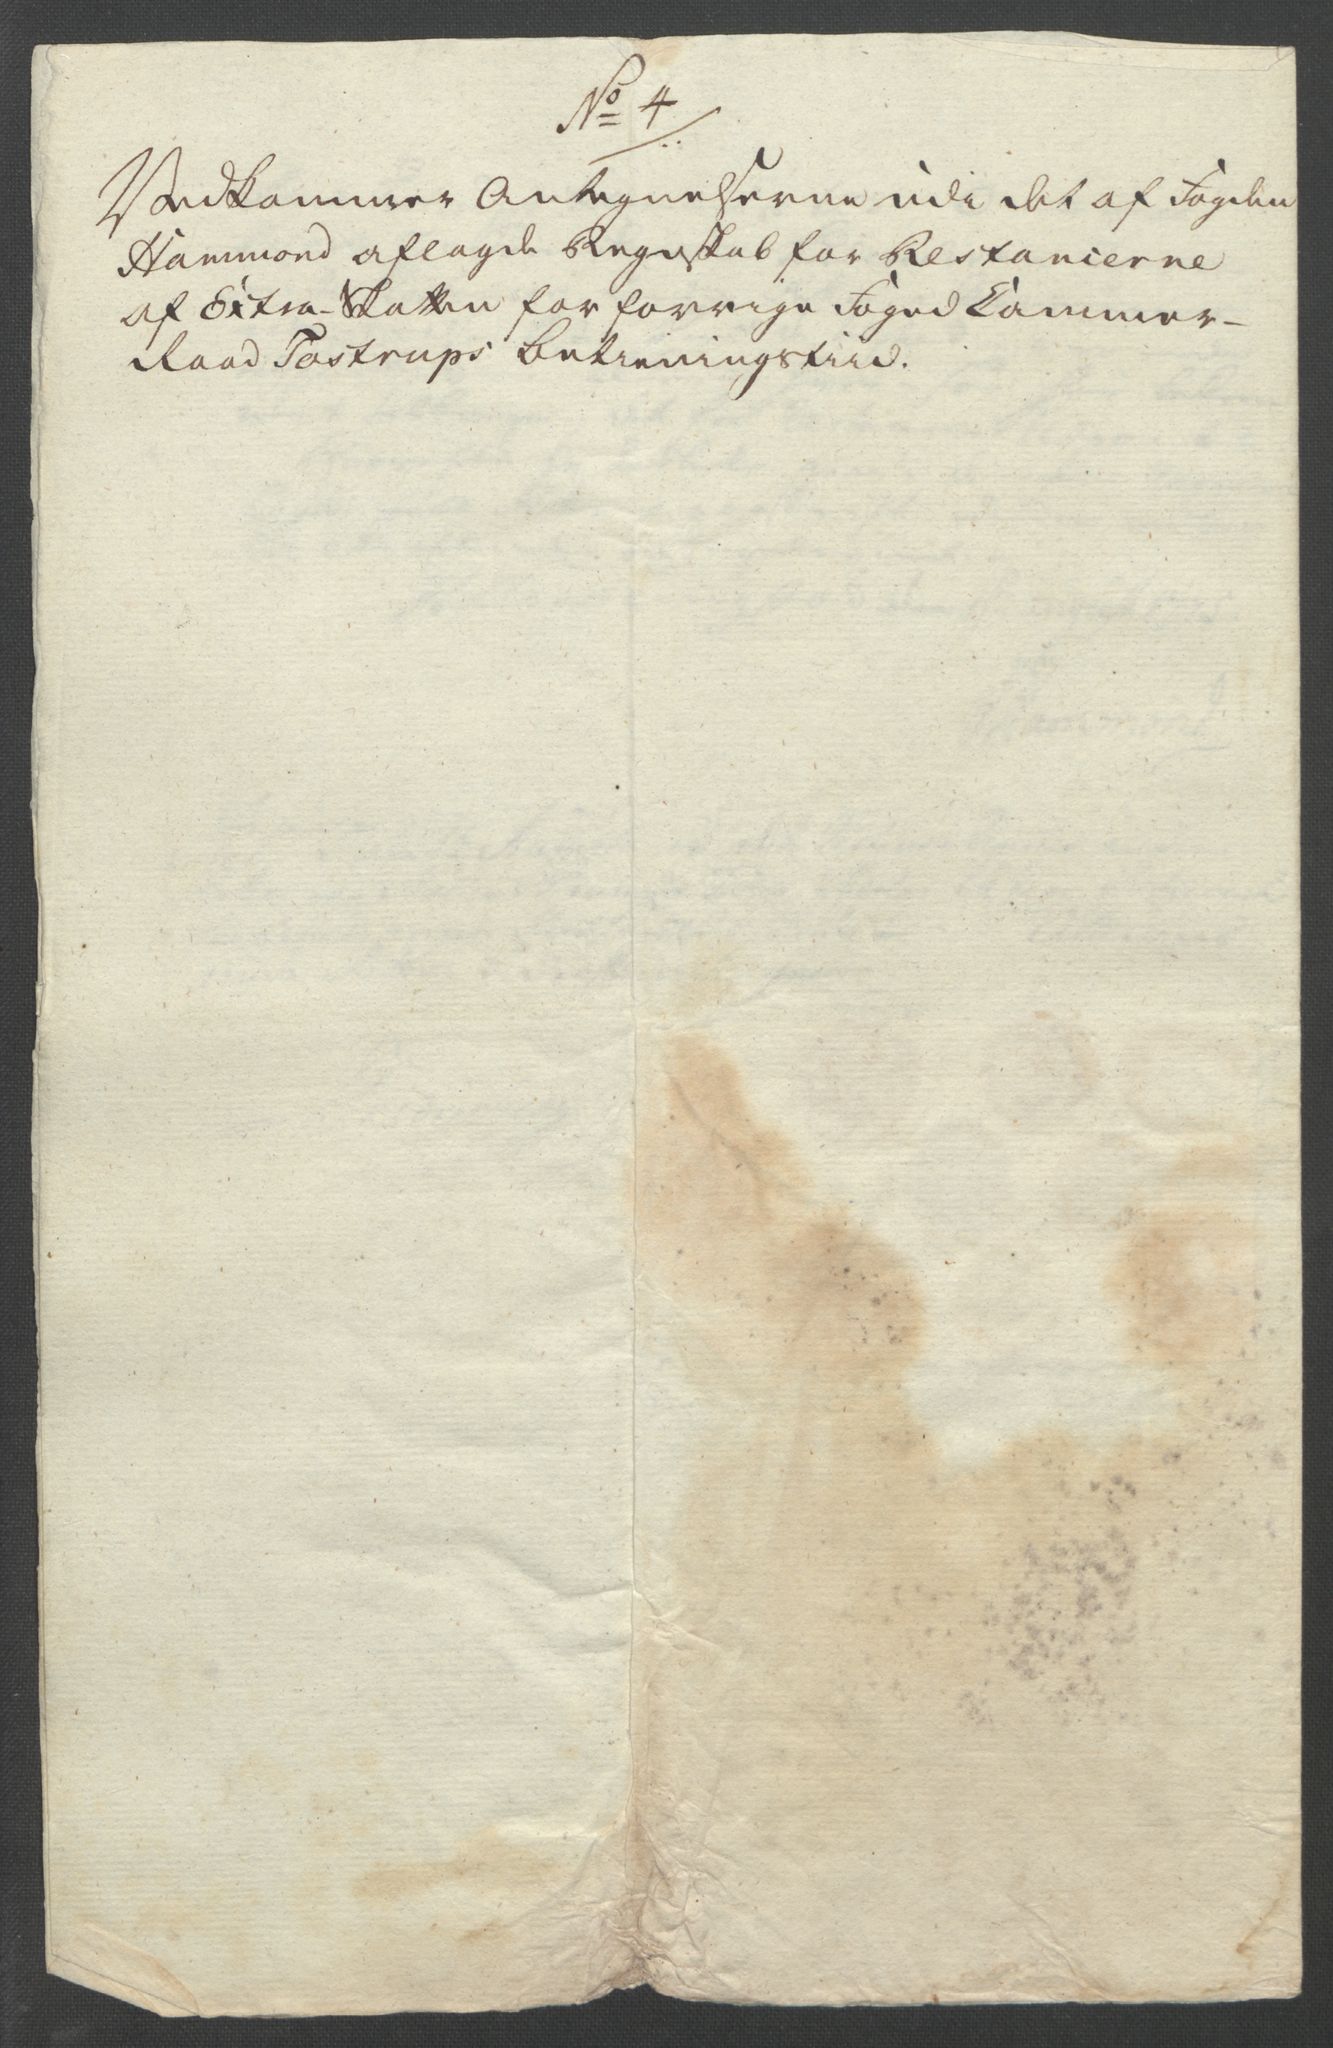 No 4
Vedkommer Antegnelserne udi det af Fogden
Hammond aflagde Regnskab for Restancierne
af Extra-Skatten for forrige Foged Cammer-
Raad Tostrups Betieningstiid.